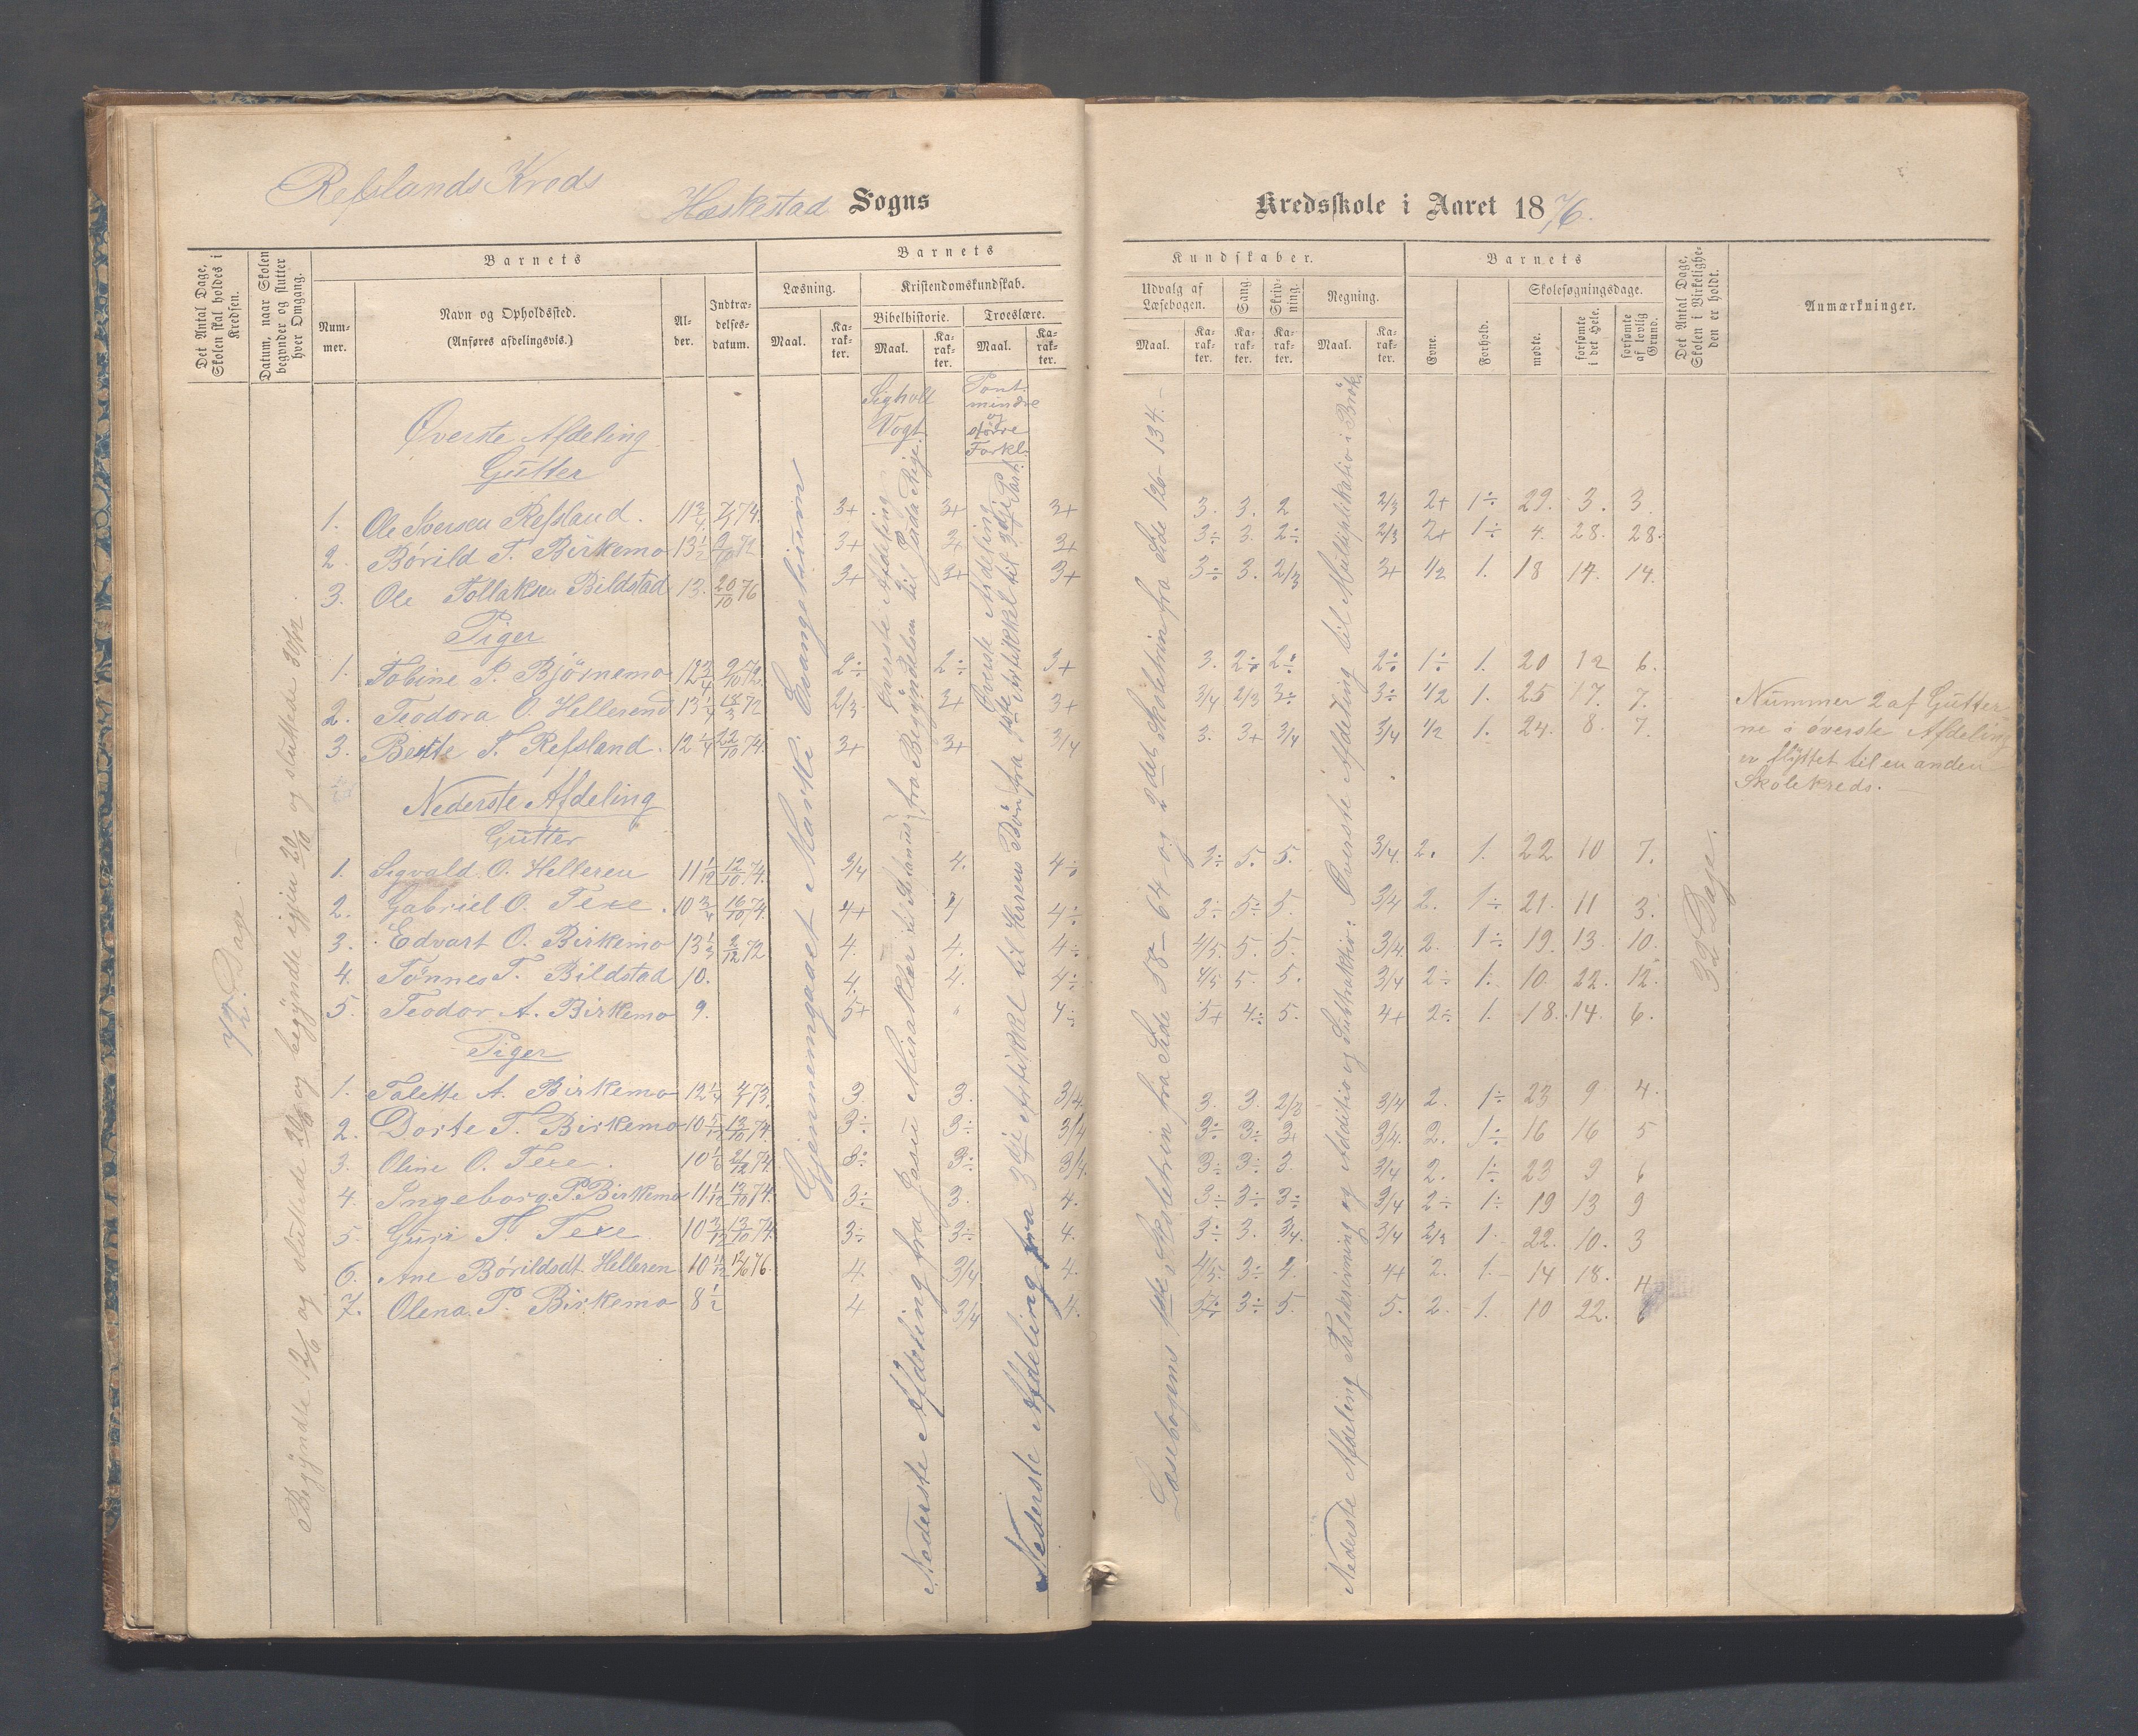 Refslands Kreds
Heskestad Sogns
Kredsskole i Aaret 1876.
Det Antal Dage, Skolen skal holdes i Kredsen.
Datum, naar Skolen begynder og slutter hver Omgang.
Barnets
Num-mer.
Navn og Opholdssted.
(Anføres afdelingsvis.)
Al-der.
Indtræ-delses-datum.
Barnets
Læsning.
Kristendomskundskab.
Bibelhistorie.
Troeslære.
Maal. Ka-rak-ter. Maal. Ka-rak-ter. Maal. Ka-rak-ter.
Kundskaber.
Udvalg af Læsebogen.
Sang.
Skriv-ning.
Regning.
Maal. Ka-rak-ter. Ka-rak-ter. Ka-rak-ter. Maal. Ka-rak-ter.
Barnets
Evne.
Forhold.
Skolesøgningsdage.
mødte.
forsømte i det Hele.
forsømte af lovlig Grund.
Det Antal Dage, Skolen i Virkelighe-den er holdt.
Anmærkninger.
Vogt.
Pont. mindre og større Forkl.
Øverste Afdeling
Gutter
1. Ole Iversen Refsland. 11 3/4 74. 3+ 3+ 3+ 3. 3. 2 2/3 2+ 1÷ 29. 3. 3.
2. Børild T. Birkemo 13 1/2 72 3+ 3+ 3+ 3÷ 3. 2÷ 2/3 2+ 1÷ 4. 28. 28.
3. Ole Tollaksen Bildstad 13. 20/10 76 3+ 3+ 3+ 3÷ 3. 2/3 3+ 1/2 1. 18 14. 14.
Piger
1. Tobine P. Bjørnemo 12 3/4 2/10 72. 2÷ 2÷ 3+ 3. 2÷ 2÷ 2÷ 1÷ 1. 20 12 6.
2. Teodora O. Hellerend 13 1/4 18/3 72 2/3 3+ 3+ 3/4 2/3 3÷ 3÷ 1/2 1. 25 17. 7.
3. Berte T. Refsland. 12 1/4 22/10 74. 3+ 3+ 3/4 3. 3+ 3/4 3/4 1/2 1. 24. 8. 7.
Nederste Afdeling
Gutter
1. Sigvald O. Helleren 11 1/12 12/10 74. 3/4 4. 4÷ 3÷ 5. 5. 3/4. 2. 1. 22 10 7.
2. Gabriel O. Texe. 10 3/4 16/10 74. 4+ 4 4÷ 3÷ 5÷ 5. 3/4 2. 1÷ 21. 11 3.
3. Edvart O. Birkemo 13 1/3 2/12 72 4. 4. 4÷ 4/5. 5. 5. 3/4. 2. 1÷ 19. 13. 10.
4. Tønnes T. Bildstad 10. 4. 4. 4÷ 4/5 5. 5. 3/4 2÷ 1. 10. 22. 12.
5. Teodor A. Birkemo 9. 5+ " 4÷ 5+ 4÷ 5. 4+ 2÷ 1. 18. 14. 6.
Piger
1. Talette A. Birkemo 12 1/4 73. 3. 3. 3/4. 3. 3. 2/3 3/4 2. 1÷ 23 9 4.
2. Dorte T. Birkemo 10 5/12 13/10 74. 3÷ 3÷ 3/4 3÷ 3÷ 3+ 3/4. 2. 1÷ 16 16 5
3. Oline O. Texe. 10 1/6 21/12 74. 3÷ 3÷ 3/4. 3÷ 3÷ 3. 3/4 2. 1÷ 23 9 6
4. Ingeborg P. Birkemo 11 1/12 13/10 74. 3÷ 3. 4. 3÷ 3÷ 3÷ 3/4 2÷ 1÷ 19 13 9
5. Guri T. Texe 10 3/12 13/10 74. 3÷ 3÷ 4. 3÷ 3. 3/4. 3/4 2/3 1. 22. 10. 3
6. Ane Børildsdt. Helleren 10 11/12 12/6 76. 4. 3/4 4. 4/5. 3÷ 4. 4+ 2. 1. 14 18. 4
7. Olena P. Birkemo 8 1/2 4 3/4 4. 3÷ 5. 5. 2. 1. 10 22. 6
72 Dage.
Begyndte 12/6 og sluttede og begyndte igjen 20/10 og sluttede 30/12.
Gjennemgaaet Marki Evangelium
Øverste Afdeling fra Begyndelsen til
Nederste Afdeling fra Jesu Mirakler til
Øverste Afdeling fra 1ste Artikkel til 3die Part.
Nederste Afdeling fra 3die Artikkel til Herrens Bøn
Læsebogens 1ste Skoletrin fra Side 58–64 og 2det Skoletrin fra Side 126–134.
Nederste Afdeling Talskrivning og Additio og Subtraktio: Øverste Afdeling til Multiplikatio i Brøk.
32 Dage.
Nummer 2 af Gutter-
ne i øverste Afdeling
er flyttet til en anden
Skolekreds.